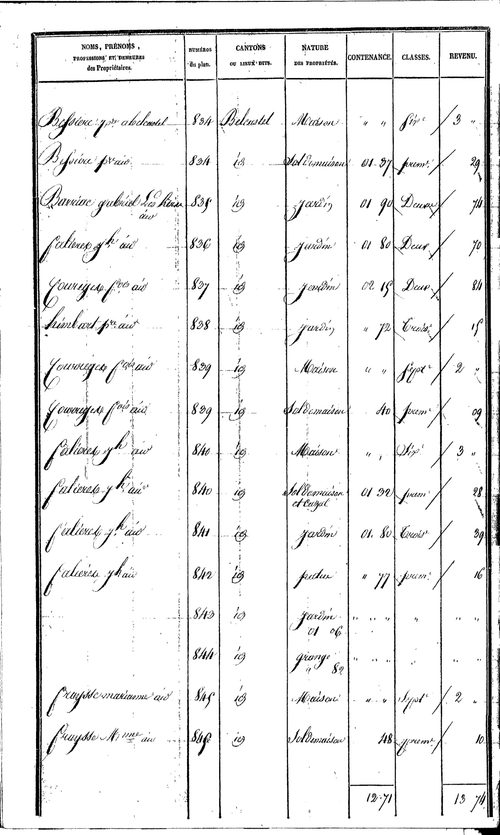 NOMS, PRÉNOMS, PROFESSIONS ET DEMEURES des Propriétaires. NUMÉROS du plan. CANTONS OU LIEUX-DITS. NATURE DES PROPRIÉTÉS. CONTENANCE. CLASSES. REVENU.
Bessiere 834 Belcastel Maison " " Sixe 3 "
Bessiere 834 id Sol de maison 01 37 prem. 29
gabriel 835 id Jardin 01 90 Deux 74
falieres jh au 836 id Jardin 01 80 Deux 70
Couronges fois au 837 id Jardin 02 15 Deux 84
838 id Jardin " 72 Trois 15
Couronges fois au 839 id Maison " " Sept 2 "
Couronges fois au 839 id Sol de maison 40 prem 09
falieres jh au 840 id Maison " " Six 3 "
falieres jh au 840 id Sol de maison 01 32 prem 28
falieres jh au 841 id Jardin 01 80 Trois 39
falieres jh au 842 id patus " 77 prem 16
843 id Jardin " " " " " "
01 06
844 id grange " " " " " "
" 82
fraysse marianne au 845 id Maison " " Sept 2 "
fraysse au 845 id Sol de maison 48 prem 10
12 71 13 74